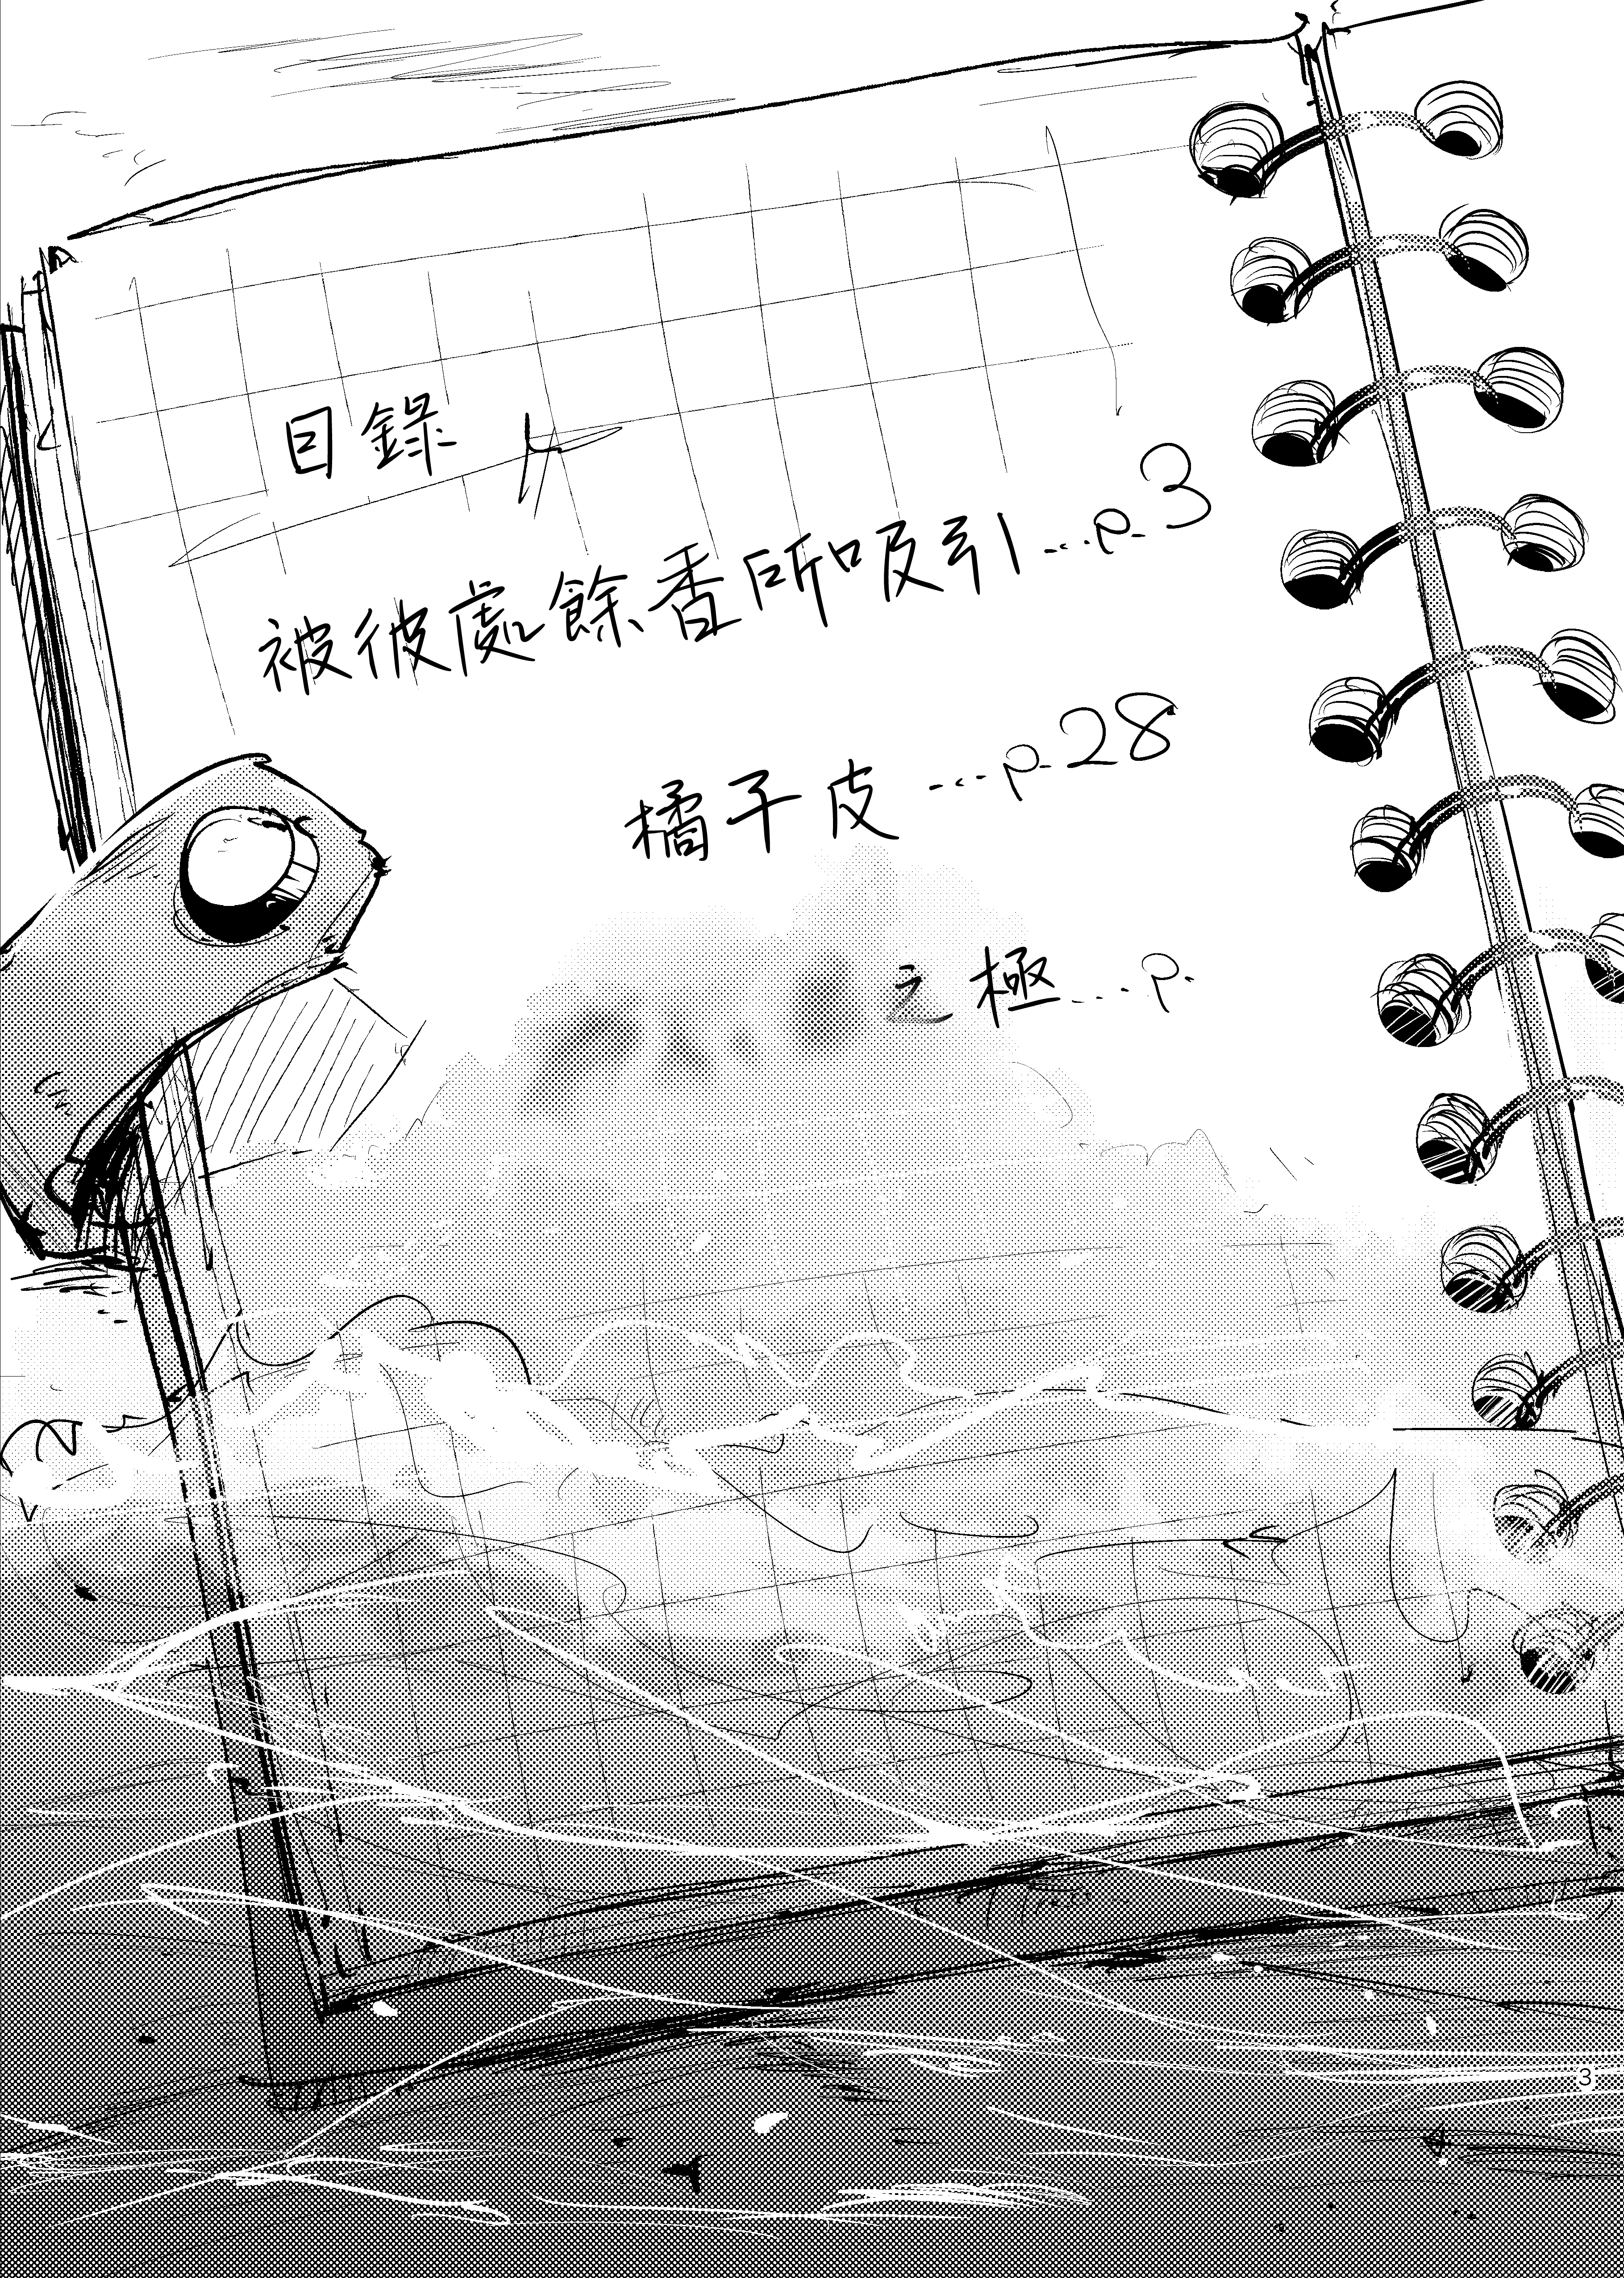 目錄
被彼處餘香所吸引...p.3
橘子皮...p.28
之極...p.
3